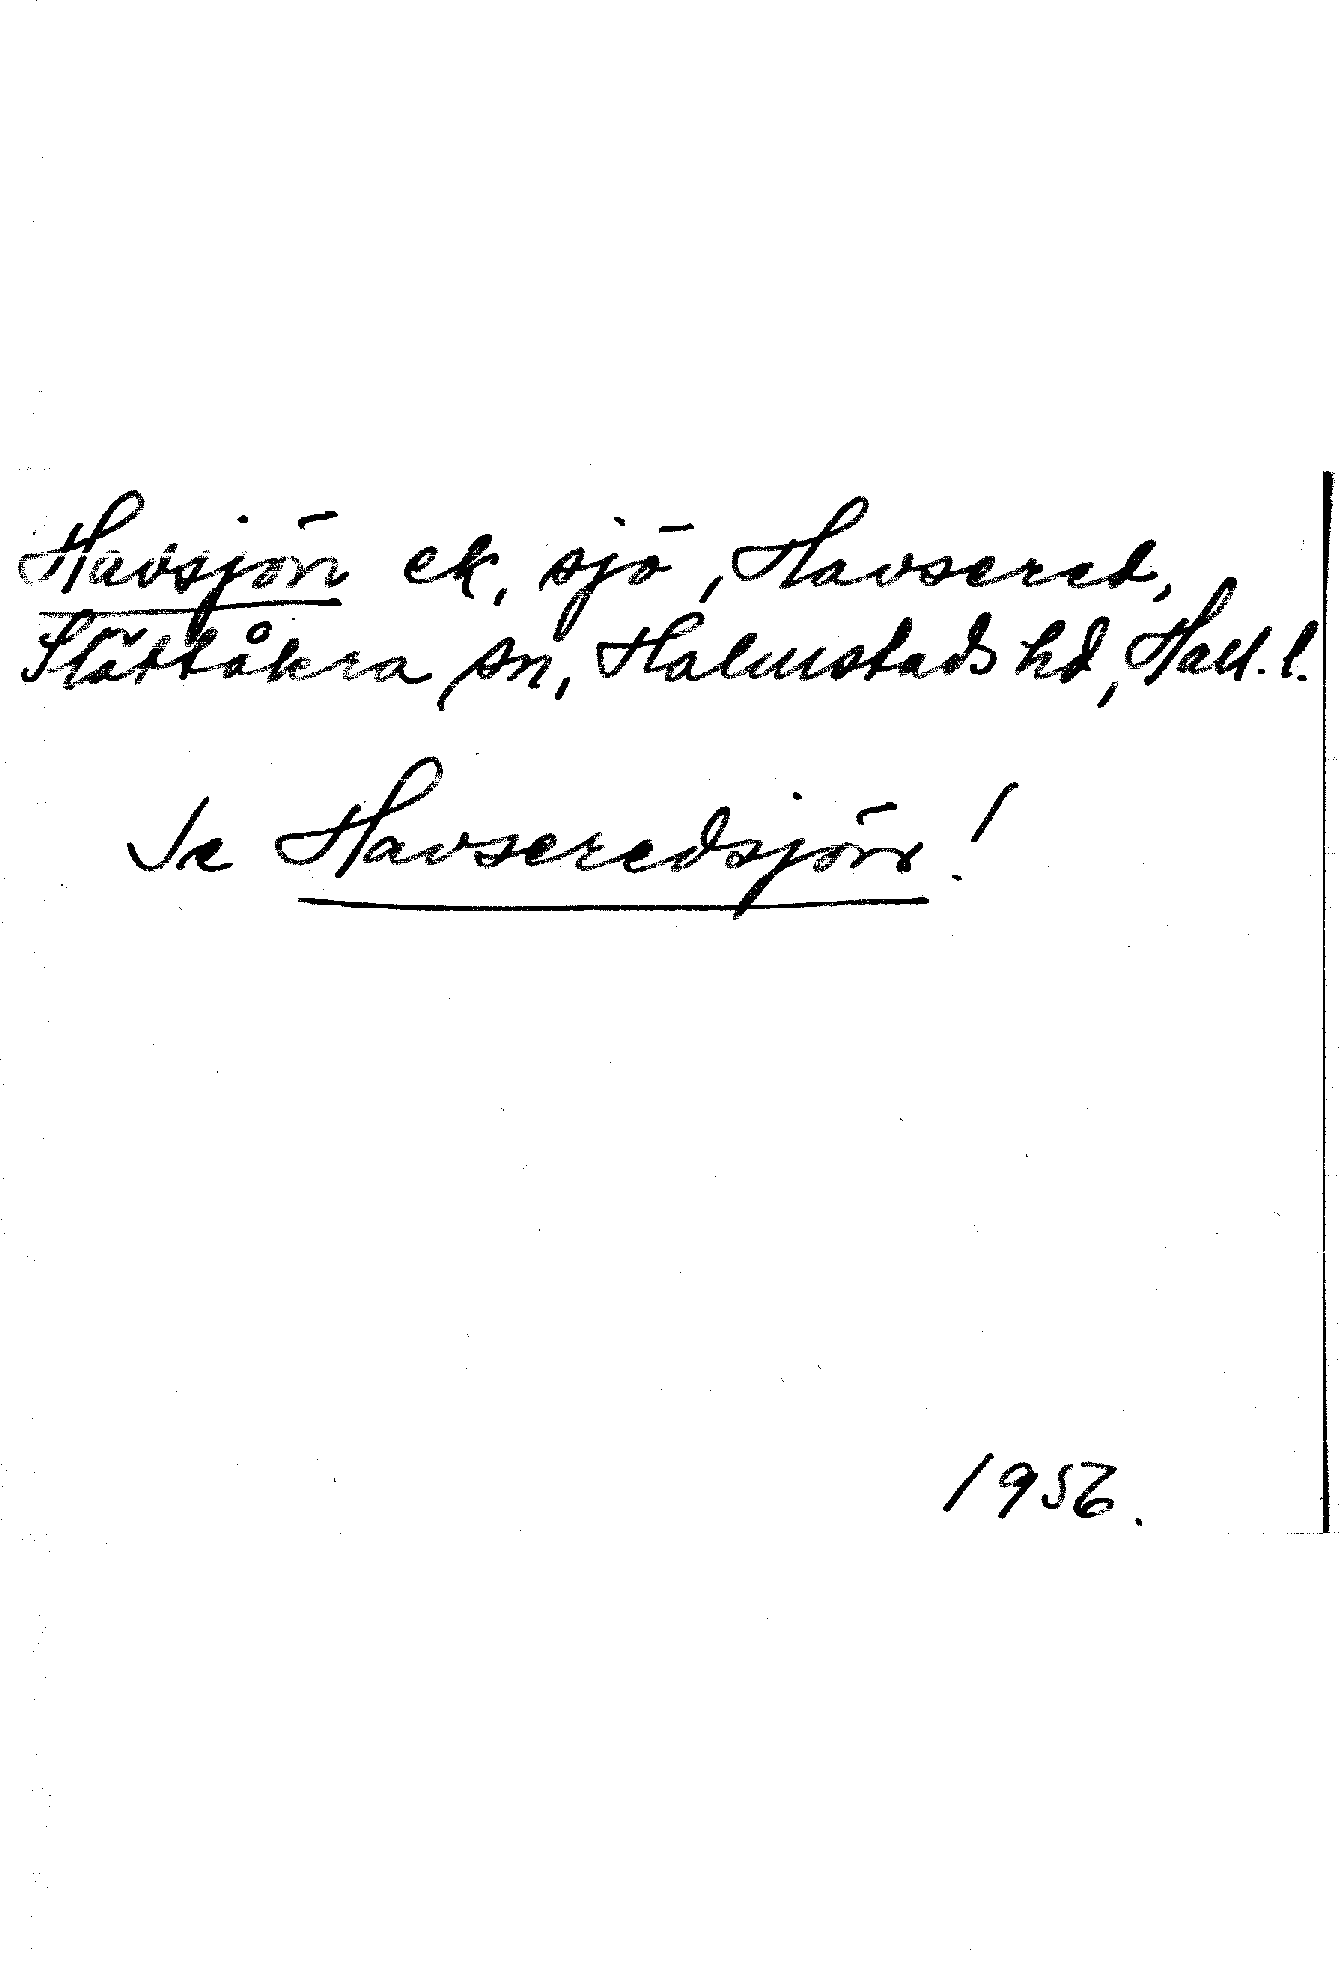 Havsjön ek, sjö, Havsered,
Slättåkra sn, Halmstads hd, Hall. l.
Se Havseredsjön!
1956.